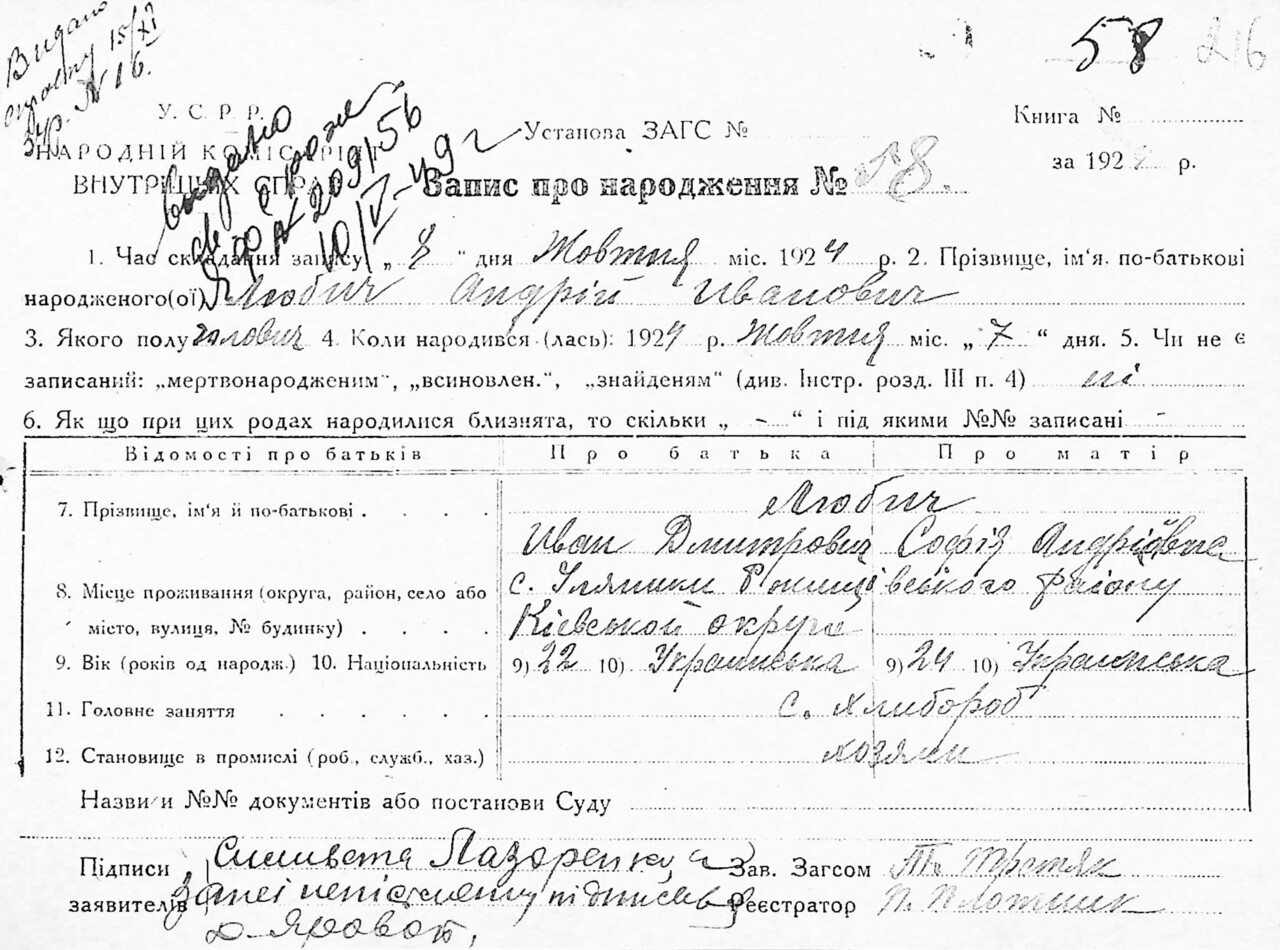 58 216
Видано
15/XI
№ 16.
У. С. Р. Р.
НАРОДНІЙ КОМІСАРІЯ
ВНУТРІШНІХ СПРА
Видано
209156
10/V-49 г
Установа ЗАГС №
Книга №
за 1924 р.
Запис про народження № 58.
1. Час складання запису „ 8 “ дня Жовтня міс. 1924 р. 2. Прізвище, ім'я, по-батькові
народженого(ої) Любич Андрій Иванович
3. Якого полу чолович 4. Коли народився (лась): 1924 р. Жовтня міс. „ 7 “ дня. 5. Чи не є
записаний: „мертвонародженим“, „всиновлен.“, „знайденям“ (див. Інстр. розд. III п. 4) ні
6. Як що при цих родах народилися близнята, то скільки „ - “ і під якими №№ записані -
Відомості про батьків Про батька Про матір
7. Прізвище, ім'я й по-батькові . . . . Любич
Иван Дмитрович Софія Андріівна
8. Місце проживання (округа, район, село або с. району
місто, вулиця, № будинку) . . . . Кіевськой округи
9. Вік (років од народж.) 10. Національність 9) 22 10) Украинська 9) 24 10) Украинська
11. Головне заняття . . . . . . с. хлибороб
12. Становище в промислі (роб., служб., хаз.) хозяин
Назви и №№ документів або постанови Суду
Підписи Лазоренку, а Зав. Загсом Третяк
заявителів за неї неписьменну підписав Реєстратор П. Плотник
Д. Яровой,